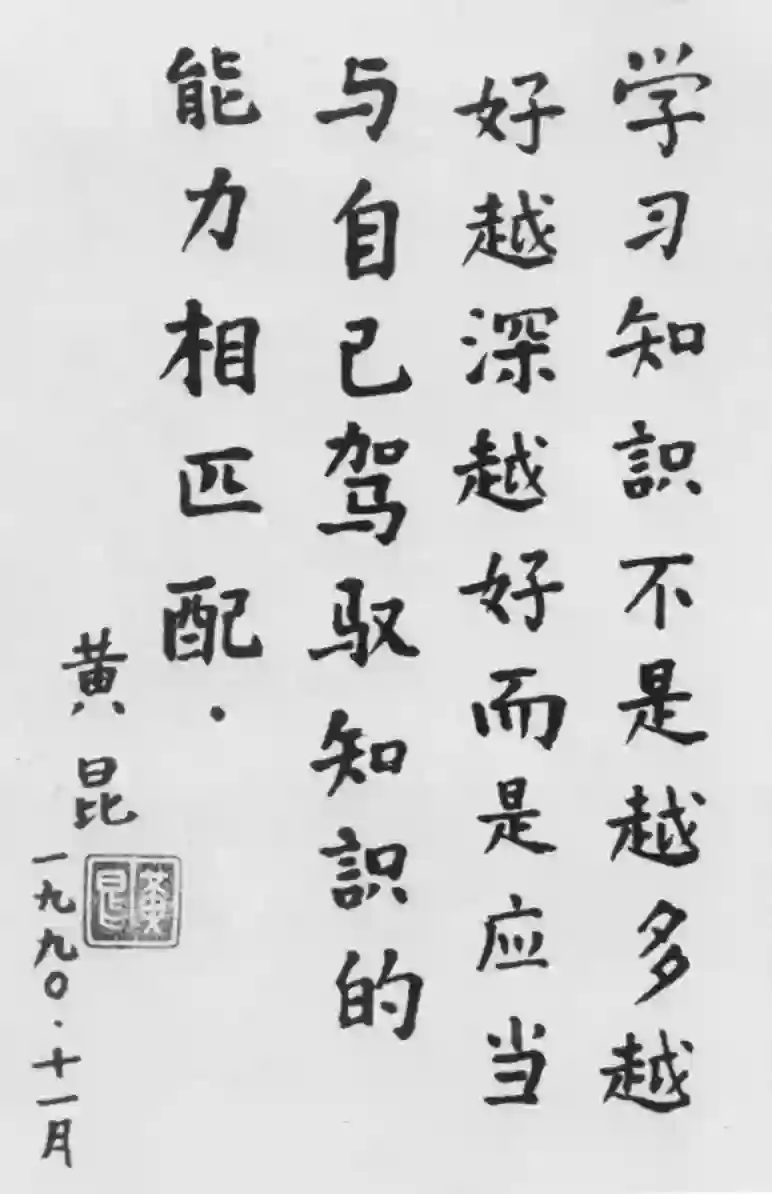 学习知识不是越多越
好越深越好而是应当
与自己驾驭知识的
能力相匹配.
黄昆
一九九〇.十一月
黄昆